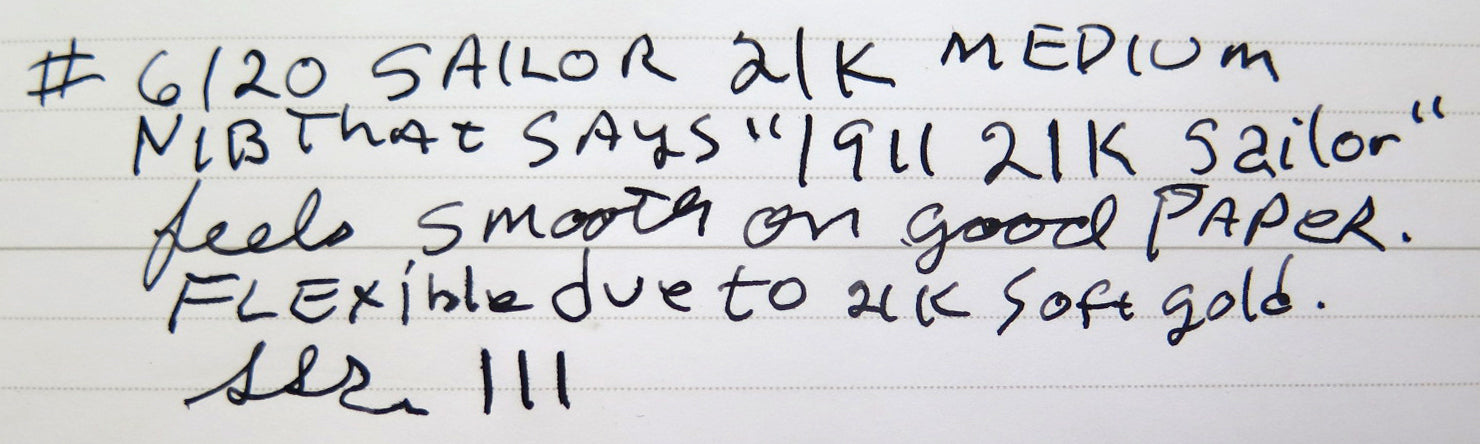 # 6120 SAILOR 21K MEDIUM
NIB ThAt SAYS "1911 21K Sailor"
feels smooth on good PAPeR.
FLExible due to 21K Soft gold.
111